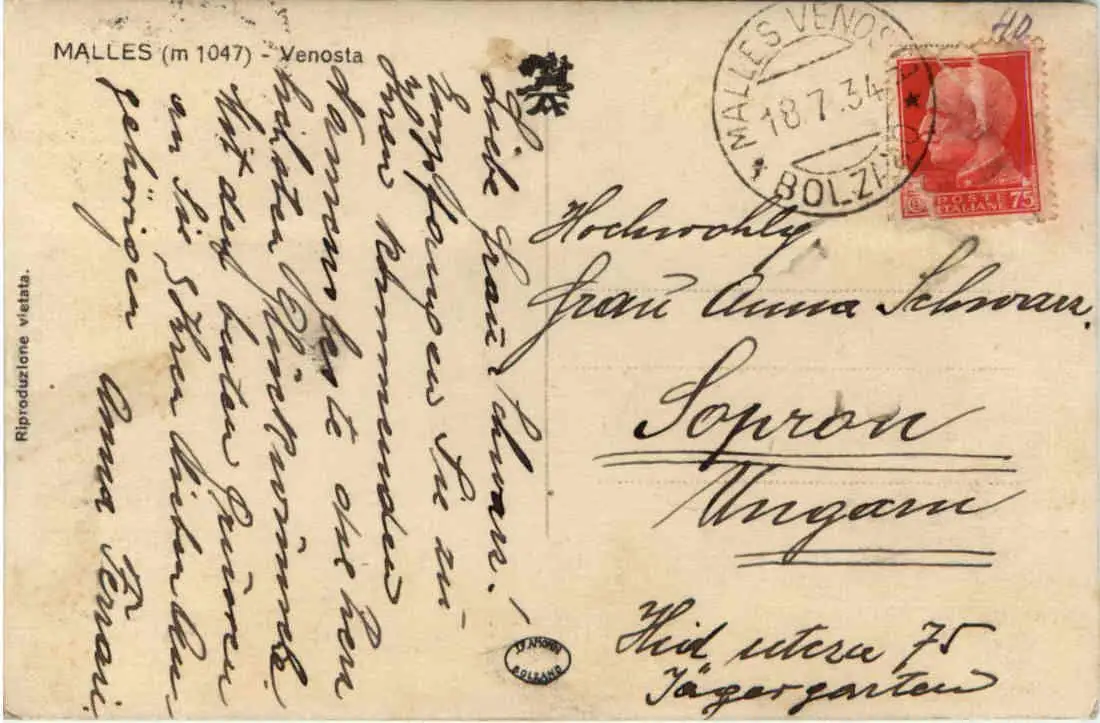 MALLES (m 1047) - Venosta
Riproduzione vietata.
Liebe Frau Schwarz!
Empfangen Sie zu
Ihrem kommenden
Namensfeste die herz
lichsten Glückwünsche
Mit den besten Grüssen
an Sie, Ihren lieben An
gehörigen
Anna Ferrari
MALLES VENOSTA
18.7.34
BOLZANO
POSTE
ITALIANE
75
Hochwohlg
Frau Anna Schwarz.
Sopron
Ungarn
Hid utcza 75
Jägergarten
BOLZANO